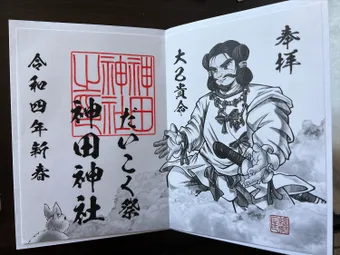 奉拝
大己貴命
だいこく祭
神田神社
神田
神社
之印
令和四年新春